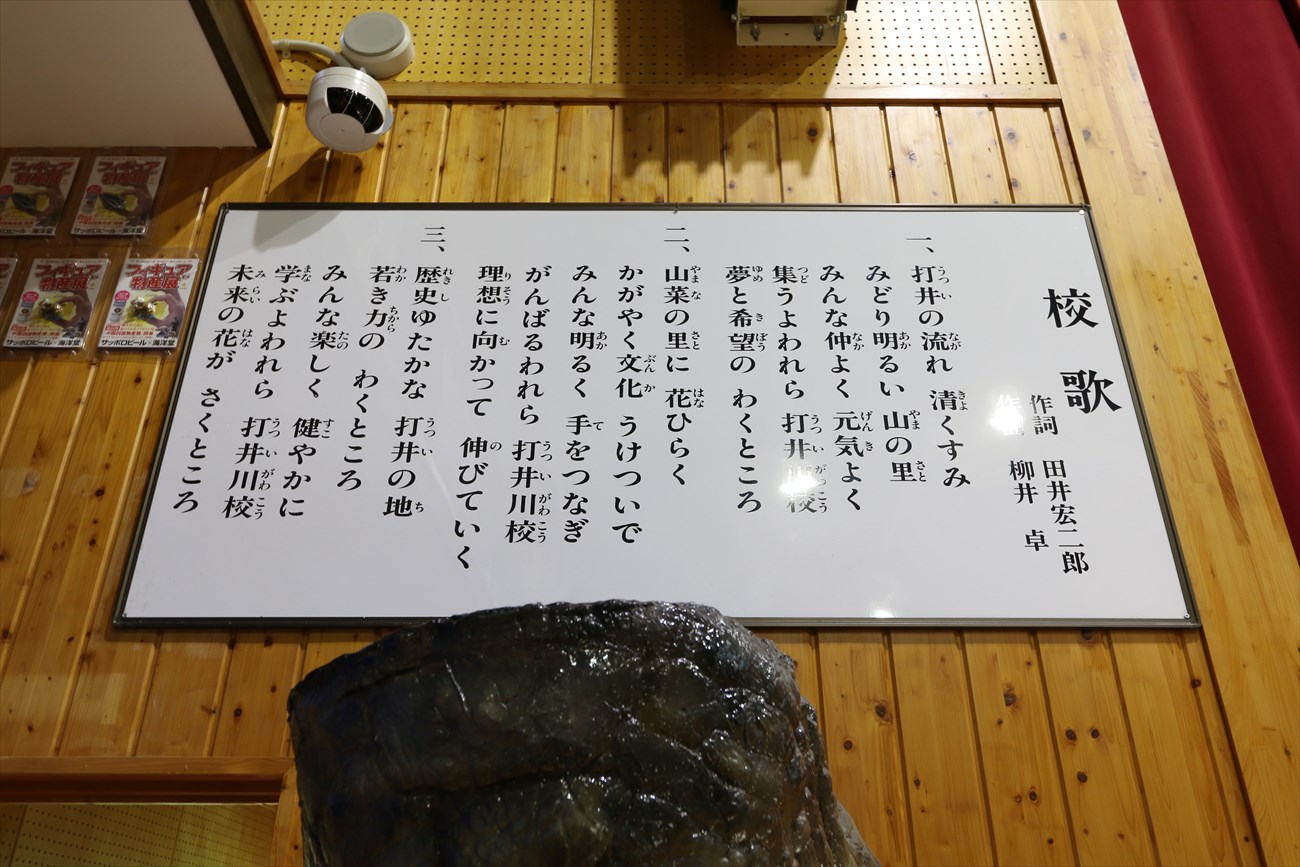 校歌
作詞 田井宏二郎
柳井 卓
一、打井の流れ 清くすみ
みどり明るい 山の里
みんな仲よく 元気よく
集うよわれら 打井 校
夢と希望の わくところ
二、山菜の里に 花ひらく
かがやく文化 うけついで
みんな明るく 手をつなぎ
がんばるわれら 打井川校
理想に向かって 伸びていく
三、歴史ゆたかな 打井の地
若き力の わくところ
みんな楽しく 健やかに
学ぶよわれら 打井川校
未来の花が さくところ
フィギュア
物産展
サッポロビール×海洋堂